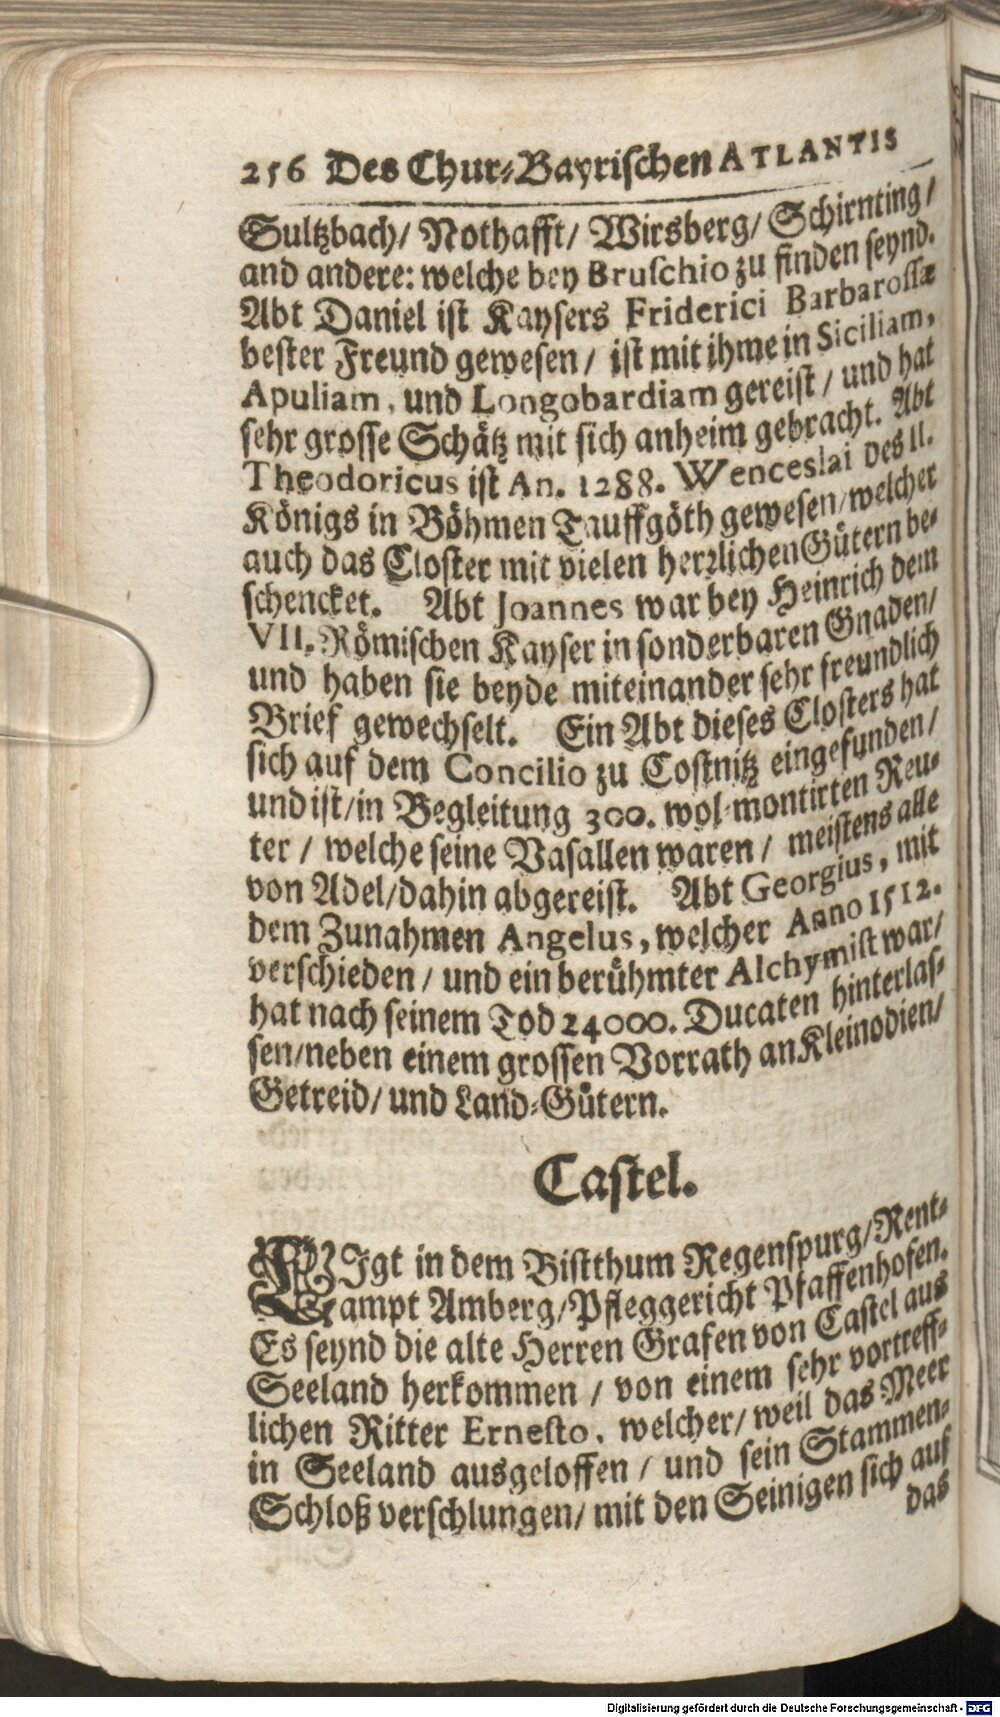 256 Des Chur-Bayrischen ATLANTIS
Sultzbach/ Nothafft/ Wirsberg/ Schirnting/
and andere: welche bey Bruschio zu finden seynd.
Abt Daniel ist Kaysers Friderici Barbarossæ
bester Freund gewesen/ ist mit ihme in Siciliam,
Apuliam, und Longobardiam gereist/ und hat
sehr grosse Schätz mit sich anheim gebracht. Abt
Theodoricus ist An. 1288. Wenceslai des II.
Königs in Böhmen Tauffgöth gewesen/welcher
auch das Closter mit vielen herrlichen Gütern be-
schencket. Abt Joannes war bey Heinrich dem
VII. Römischen Kayser in sonderbaren Gnaden/
und haben sie beyde miteinander sehr freundlich
Brief gewechselt. Ein Abt dieses Closters hat
sich auf dem Concilio zu Costnitz eingefunden/
und ist/in Begleitung 300. wol-montirten Reu-
ter/ welche seine Vasallen waren/ meistens alle
von Adel/dahin abgereist. Abt Georgius, mit
dem Zunahmen Angelus, welcher Anno 1512.
verschieden/ und ein berühmter Alchymist war/
hat nach seinem Tod 24000. Ducaten hinterlas-
sen/neben einem grossen Vorrath an Kleinodien/
Getreid/ und Land-Gütern.
Castel.
LIgt in dem Bistthum Regenspurg/Rent-
ampt Amberg/Pfleggericht Pfaffenhofen.
Es seynd die alte Herren Grafen von Castel aus
Seeland herkommen/ von einem sehr vortreff-
lichen Ritter Ernesto, welcher/ weil das Meer
in Seeland ausgeloffen/ und sein Stammen-
Schloß verschlungen/ mit den Seinigen sich auf
das
Digitalisierung gefördert durch die Deutsche Forschungsgemeinschaft - DFG